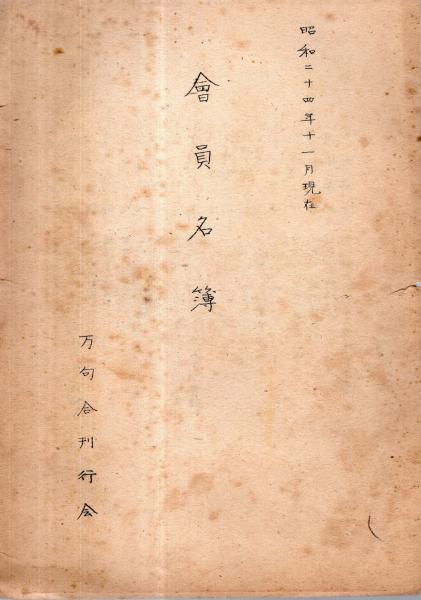 昭和二十四年十一月現在
會員名簿
万句合刊行会